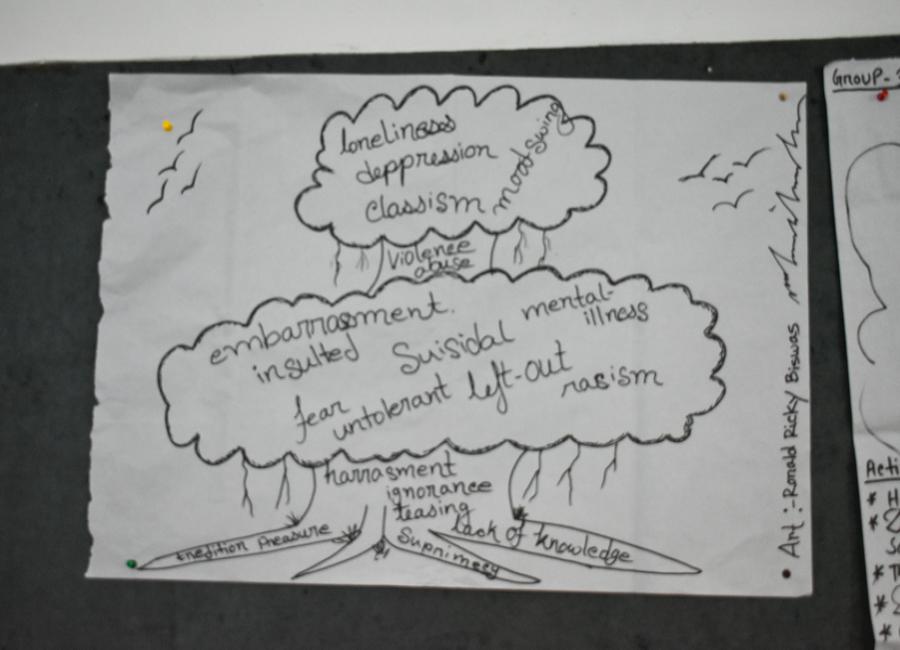 loneliness
deppression
classism
mood swing
violence
abuse
embarrassment.
insulted
Suisidal
mental-
illness
fear
untolerant
left-out
rasism
harrasment
ignorance
teasing
Suprimecy
lack of knowledge
Art :- Ronald Ricky Biswas
GROUP-3
Acti